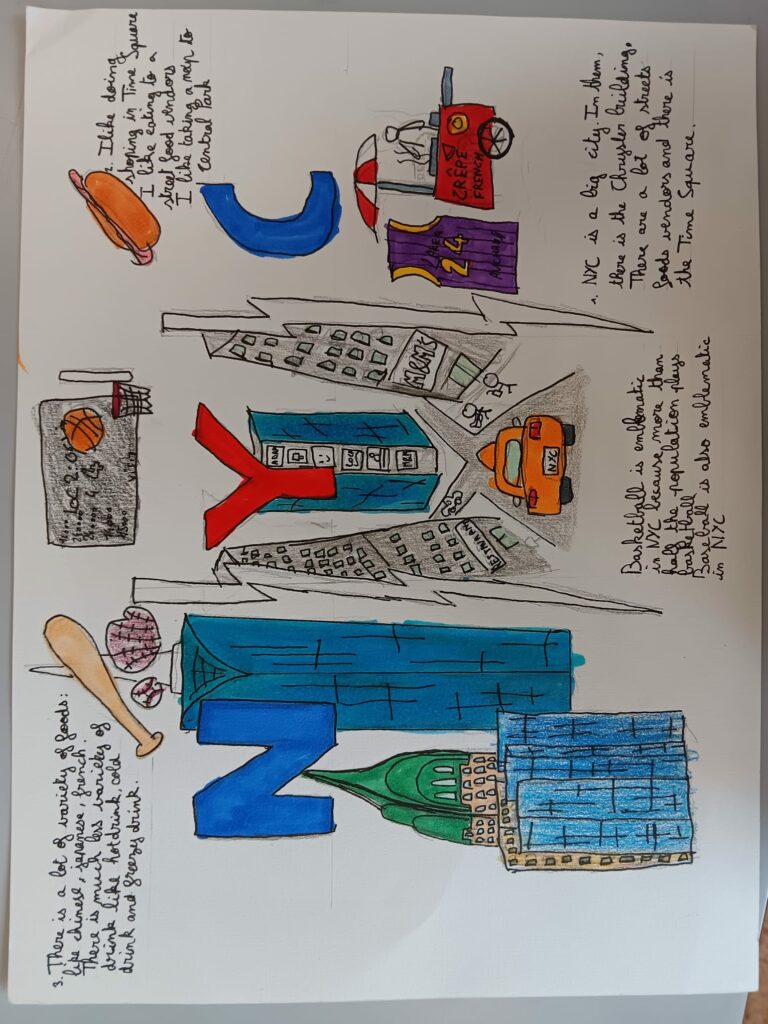 3. There is a lot of variety of foods:
like chinese, japanese, french.
There is much less variety of
drink like hot drink, cold
drink and greezy drink.
2. I like doing
shoping in Time Square
I like eating to a
street food vendors
I like taking a nap to
Central Park
N Y C
CRÊPE
FRENCH
24
M&M'S
NYC
Basketball is emblomatic
in NYC because more than
half the population plays
basketball
Baseball is also emblematic
in NYC
1. NYC is a big city. In them,
there is the Chrysler building.
There are a lot of streets
foods vendors and there is
the Time Square.